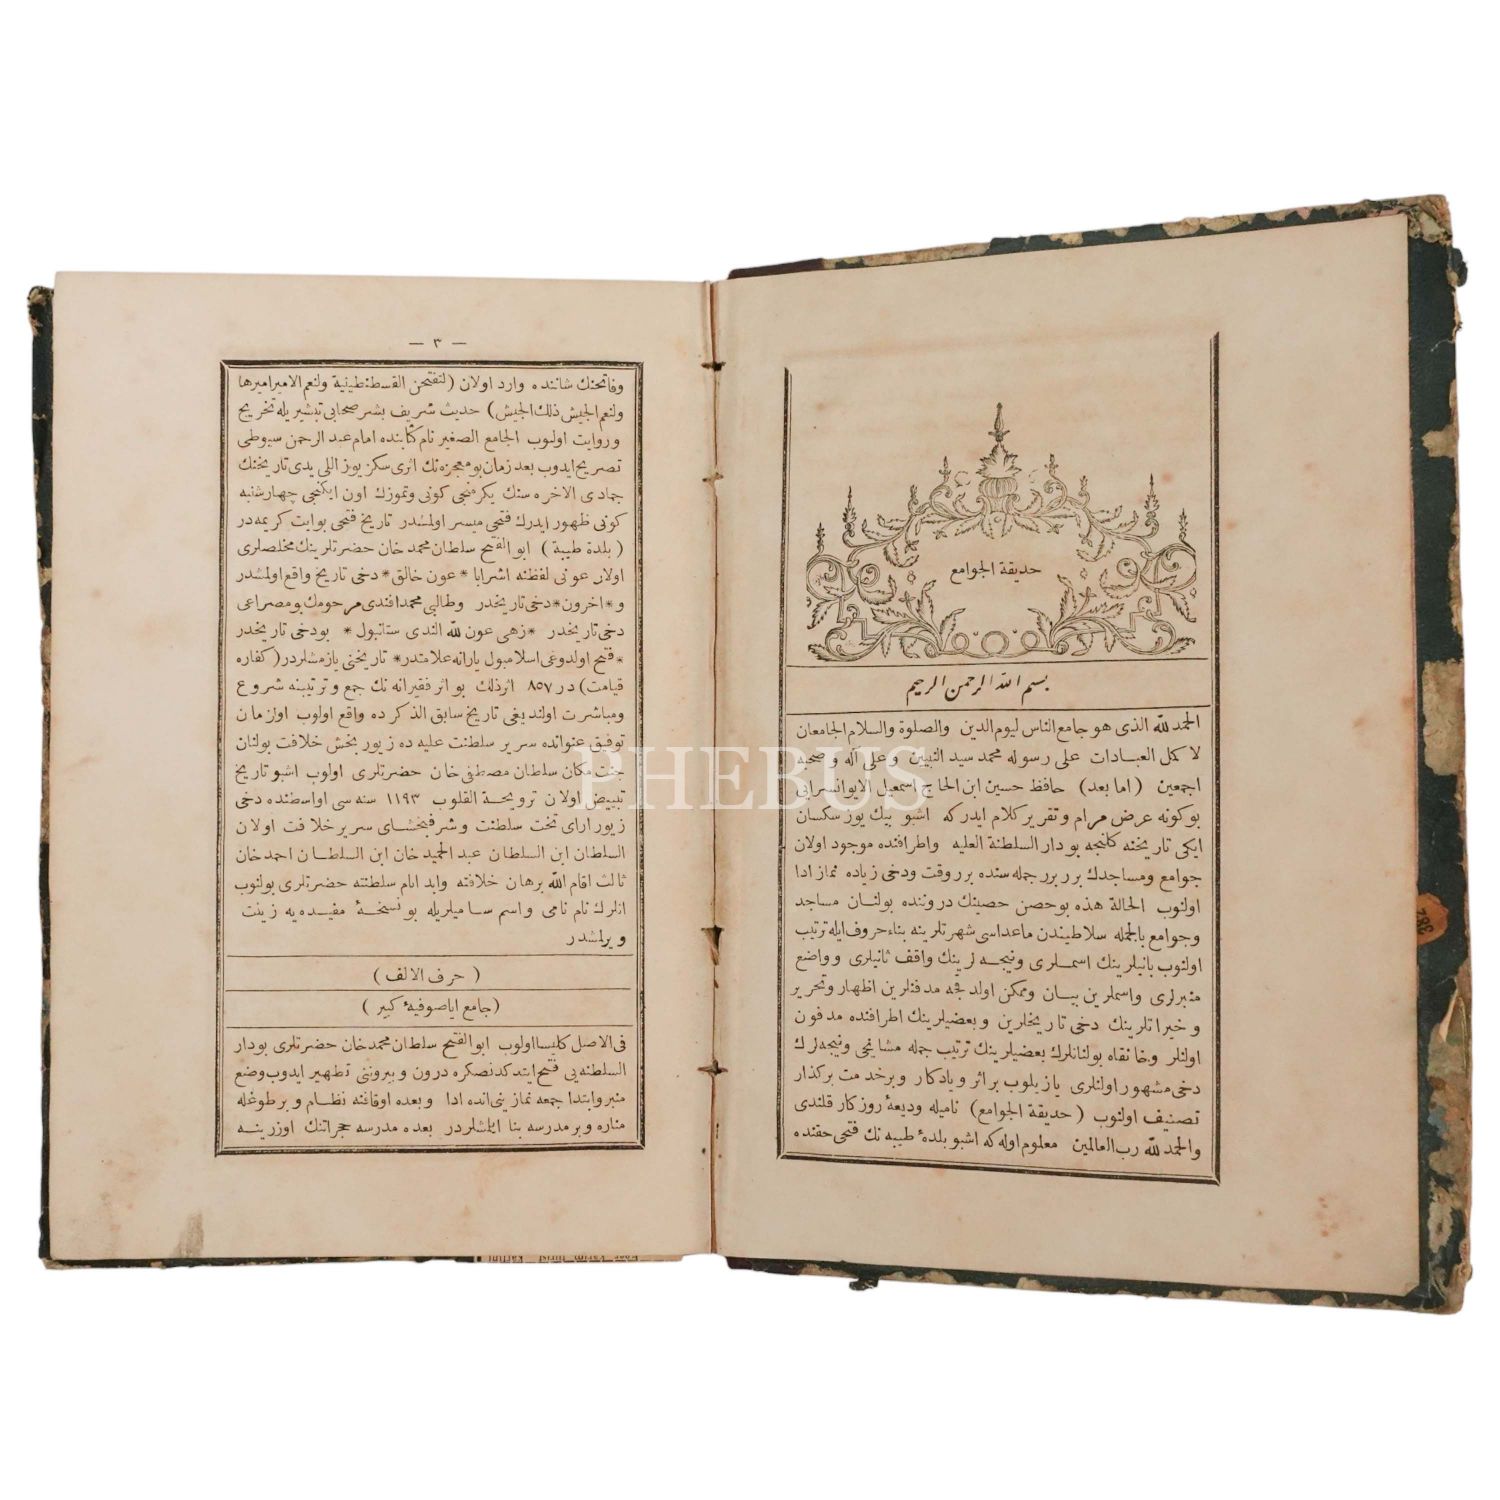 حديقة الجوامع
بسم الله الرحمن الرحيم
الحمد لله الذى هو جامع الناس ليوم الدين والصلوة والسلام الجامعان
لاكمل العبادات على رسوله محمد سيد النبيين وعلى آله وصحبه
اجمعين (اما بعد) حافظ حسين ابن الحاج اسمعيل الايوانسرايى
بوكونه عرض مرام وتقرير كلام ايدركه اشبو بيك يوز سكسان
ايكى تاريخنه كلنجه بو دار السلطنة العليه واطرافنده موجود اولان
جوامع ومساجدك برر برر جمله سنده بر وقت ودخى زياده نماز ادا
اولنوب الحالة هذه بو حصن حصينك دروننده بولنان مساجد
وجوامع بالجمله سلاطيندن ماعداسى شهرتلرينه بناء حروف ايله ترتيب
اولنوب بانيلرينك اسملرى ونيجه لرينك واقف ثانيلرى وواضع
منبرلرى واسملرين بيان وممكن اولدقجه مدفنلرين اظهار وتحرير
وخيراتلرينك دخى تاريخلرين وبعضيلرينك اطرافنده مدفون
اولنلر وخانقاه بولنانلرك بعضيلرينك ترتيب جمله مشايخى ونيجه لرك
دخى مشهور اولنلرى يازيلوب بر اثر ويادكار وبر خدمت بركذار
تصنيف اولنوب (حديقة الجوامع) ناميله وديعۀ روزكار قلندى
والحمد لله رب العالمين معلوم اوله كه اشبو بلدۀ طيبه نك فتحى حقنده
— ٣ —
وفاتحنك شاننده وارد اولان (لتفتحن القسطنطينية ولنعم الامير اميرها
ولنعم الجيش ذلك الجيش) حديث شريف بشر صحابى تبشيريله تخريج
وروايت اولنوب الجامع الصغير نام كتابنده امام عبد الرحمن سيوطى
تصريح ايدوب بعد زمان بو معجزه نك اثرى سكز يوز اللى يدى تاريخنك
جمادى الاخره سنك يكرمنجى كونى وتموزك اون ايكنجى چهارشنبه
كونى ظهور ايدرك فتحى ميسر اولمشدر تاريخ فتحى بو ايت كريمه در
(بلدة طيبة) ابو الفتح سلطان محمد خان حضرتلرينك مخلصلرى
اولان عونى لفظنه اشرابا *عون خالق* دخى تاريخ واقع اولمشدر
و*اخرون*دخى تاريخدر وطالبى محمد افندى مرحومك بو مصراعى
دخى تاريخدر *زهى عون لله الندى ستانبول* بودخى تاريخدر
*فتح اولدوغى اسلامبول يارانه علامتدر* تاريخنى يازمشلردر(كفاره
قيامت) در ٨٥٧ اثر ذلك بو اثر فقيرانه نك جمع وترتيبنه شروع
ومباشرت اولنديغى تاريخ سابق الذكرده واقع اولوب اول زمان
توفيق عنوانده سرير سلطنت عليه ده زيور بخش خلافت بولنان
جنت مكان سلطان مصطفى خان حضرتلرى اولوب اشبو تاريخ
تبييض اولان ترويحة القلوب ١١٩٣ سنه سى اواسطنده دخى
زيور اراى تخت سلطنت وشرفبخشاى سرير خلافت اولان
السلطان ابن السلطان عبد الحميد خان ابن السلطان احمد خان
ثالث اقام الله برهان خلافته وابد انام سلطنته حضرتلرى بولنوب
انلرك نام نامى واسم ساميلريله بو نسخۀ مفيده يه زينت
ويرلمشدر
(حرف الالف)
(جامع اياصوفيۀ كبير)
فى الاصل كليسا اولوب ابو الفتح سلطان محمد خان حضرتلرى بو دار
السلطنه يى فتح ايتدكدنصكره درون وبيروننى تطهير ايدوب وضع
منبر وابتدا جمعه نمازينى انده ادا وبعده اوقافنه نظام وبر طوغله
مناره وبر مدرسه بنا ايلمشلردر بعده مدرسه حجراتنك اوزرينه
PHEBUS